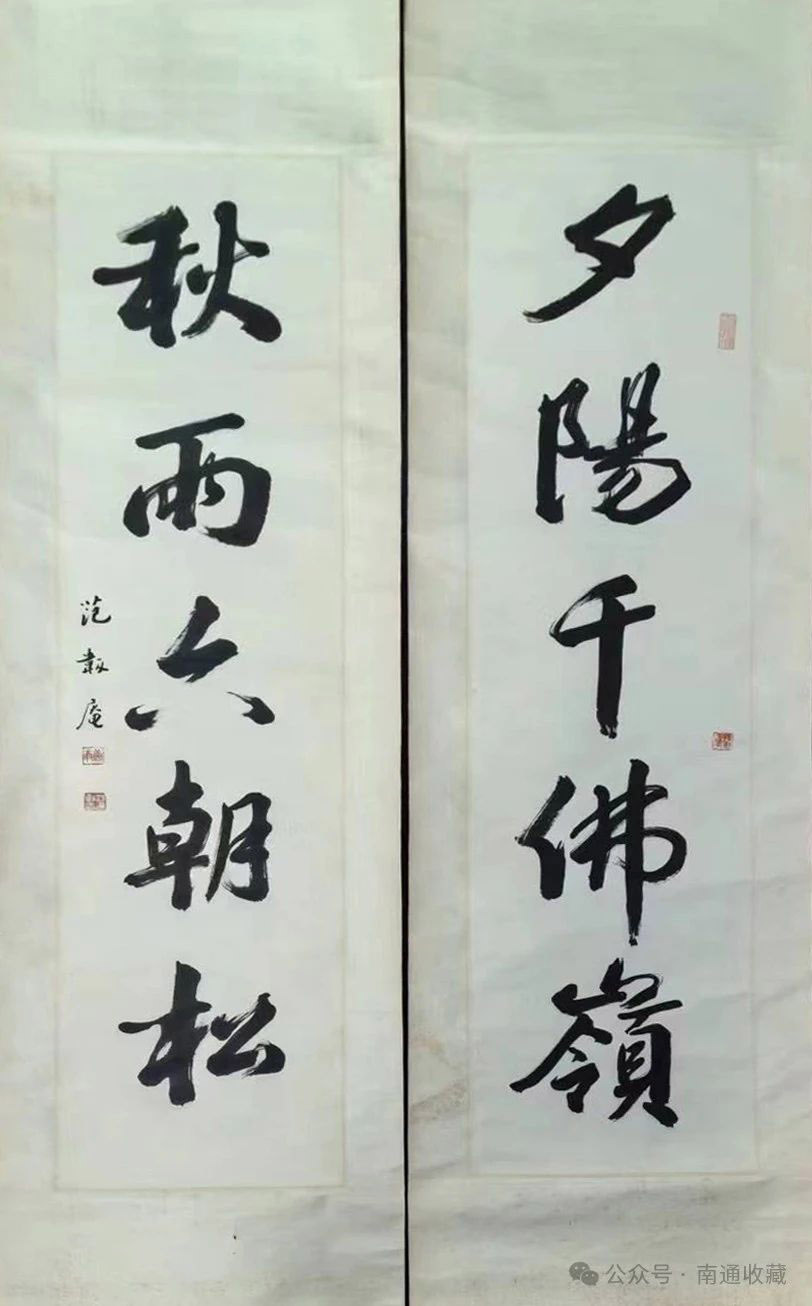 夕陽千佛嶺
秋雨六朝松
范敖庵
公众号·南通收藏